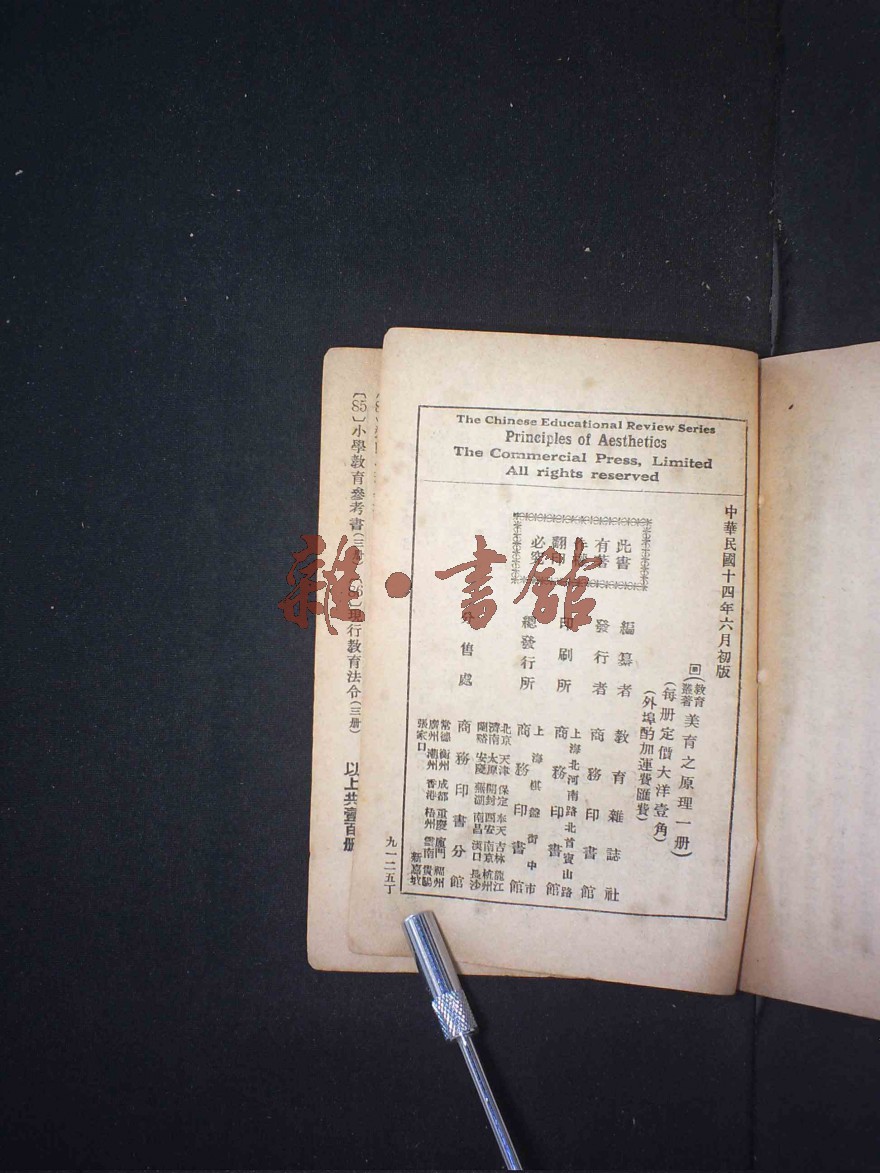 The Chinese Educational Review Series
Principles of Aesthetics
The Commercial Press, Limited
All rights reserved
中華民國十四年六月初版
(教育叢著美育之原理一册)
(每册定價大洋壹角)
(外埠酌加運費匯費)
此書
有著
翻印
必究
編纂者 教育雜誌社
發行者 商務印書館
印刷所 上海北河南路北首寶山路 商務印書館
總發行所 上海棋盤街中市 商務印書館
分售處 商務印書分館
北京 天津 保定 奉天 吉林 龍江
濟南 太原 開封 西安 南京 杭州
蘭谿 安慶 蕪湖 南昌 漢口 長沙
常德 衡州 成都 重慶 廈門 福州
廣州 潮州 香港 梧州 雲南 貴陽
張家口 新嘉坡
九一二五丁
〔85〕小學教育參考書(三册)
〔86〕現行教育法令(三册)
以上共壹百册
雜·書館